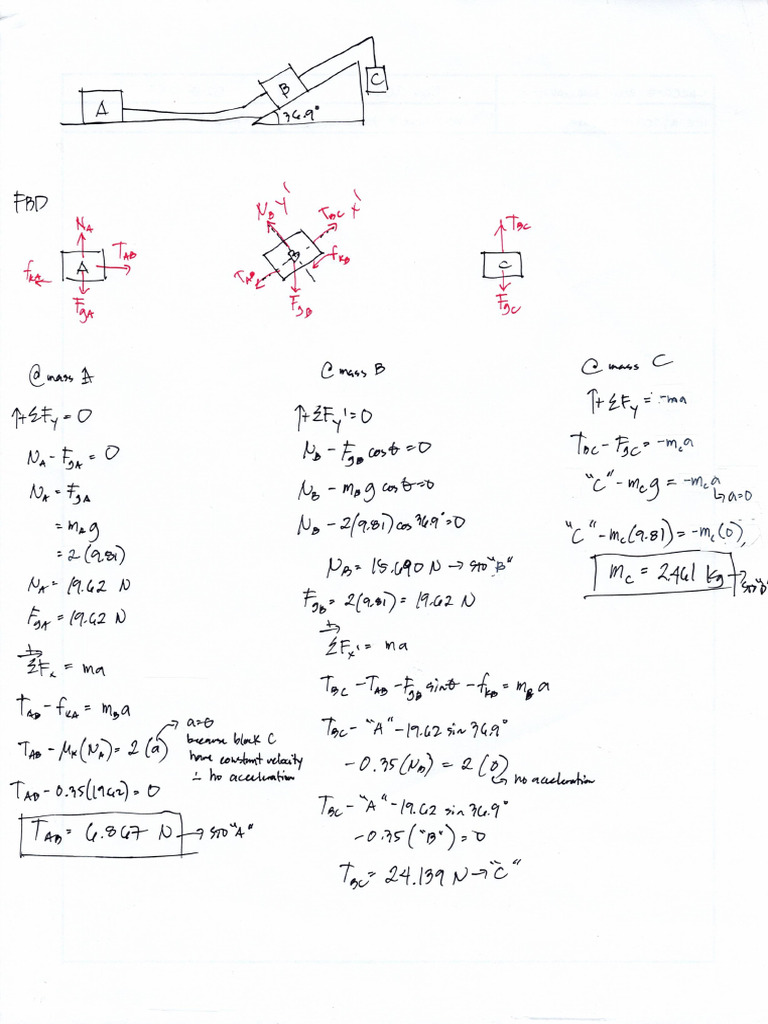 A
B
C
36.9°
FBD
N_A
T_AB
f_kA
A
F_gA
N_B Y'
T_BC X'
B
f_kB
T_AB
F_gB
T_BC
C
F_gC
@ mass A
↑+ ΣF_Y = 0
N_A - F_gA = 0
N_A = F_gA
= m_A g
= 2(9.81)
N_A = 19.62 N
F_gA = 19.62 N
ΣF_x = ma
T_AB - f_kA = m_B a
T_AB - μ_k(N_A) = 2(a)
→ a=0
because block C
have constant velocity
∴ no acceleration
T_AB - 0.35(19.62) = 0
T_AB = 6.867 N → STO "A"
@ mass B
↑+ ΣF_Y' = 0
N_B - F_gB cos θ = 0
N_B - m_B g cos θ = 0
N_B - 2(9.81) cos 36.9° = 0
N_B = 15.690 N → STO "B"
F_gB = 2(9.81) = 19.62 N
ΣF_x' = ma
T_BC - T_AB - F_gB sin θ - f_kB = m_B a
T_BC - "A" - 19.62 sin 36.9°
- 0.35(N_B) = 2(0)
↳ no acceleration
T_BC - "A" - 19.62 sin 36.9°
- 0.35("B") = 0
T_BC = 24.139 N → "C"
@ mass C
↑+ ΣF_Y = -ma
T_BC - F_gC = -m_c a
"C" - m_c g = -m_c a
↳ a=0
"C" - m_c(9.81) = -m_c(0)
m_c = 2.461 kg → STO "D"